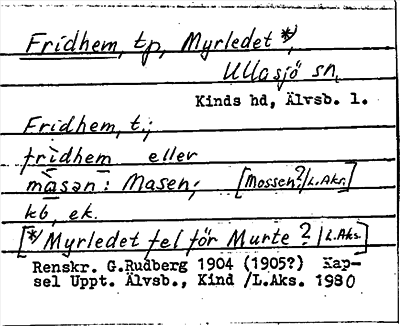 Fridhem, tp, Myrledet *),
Ullasjö sn,
Kinds hd, Älvsb. l.
Fridhem, t.;
fridhem eller
màsən: Masen; [Mossen?/L.Aks.]
kb, ek.
[*) Myrledet fel för Murte?/L.Aks.]
Renskr. G.Rudberg 1904 (1905?) Kap-
sel Uppt. Älvsb., Kind /L.Aks. 1980